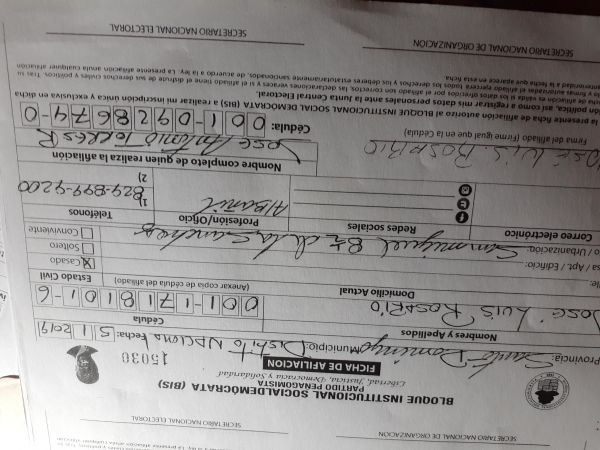 SECRETARIO DE ORGANIZACIÓN
SECRETARIO NACIONAL ELECTORAL
BLOQUE INSTITUCIONAL SOCIALDEMÓCRATA (BIS)
PARTIDO PEÑAGOMISTA
Libertad, Justicia, Democracia y Solidaridad
FICHA DE AFILIACION
15030
Provincia: Santo Domingo Municipio: Distrito Nacional Fecha: 5 1 2019
Nombres y Apellidos
Cédula
JOSÉ LUIS ROSARIO
001-1718101-6
Domicilio Actual
(Anexar copia de cédula del afiliado)
Estado Civil
Casado
Soltero
Conviviente
Correo electrónico
Redes sociales
Profesión/Oficio
Teléfonos
Albañil
1) 829-899-9200
2)
Nombre completo de quien realiza la afiliación
José Antonio Torres R
Firma del afiliado (Firme igual que en la Cédula)
José Luis Rosario
Cédula: 001-0928674-0
presente ficha de afiliación autorizo al BLOQUE INSTITUCIONAL SOCIAL DEMOCRATA (BIS) a realizar mi inscripción única y exclusiva en dicha
política, así como a registrar mis datos personales ante la Junta Central Electoral.
SECRETARIO NACIONAL DE ORGANIZACIÓN
SECRETARIO NACIONAL ELECTORAL